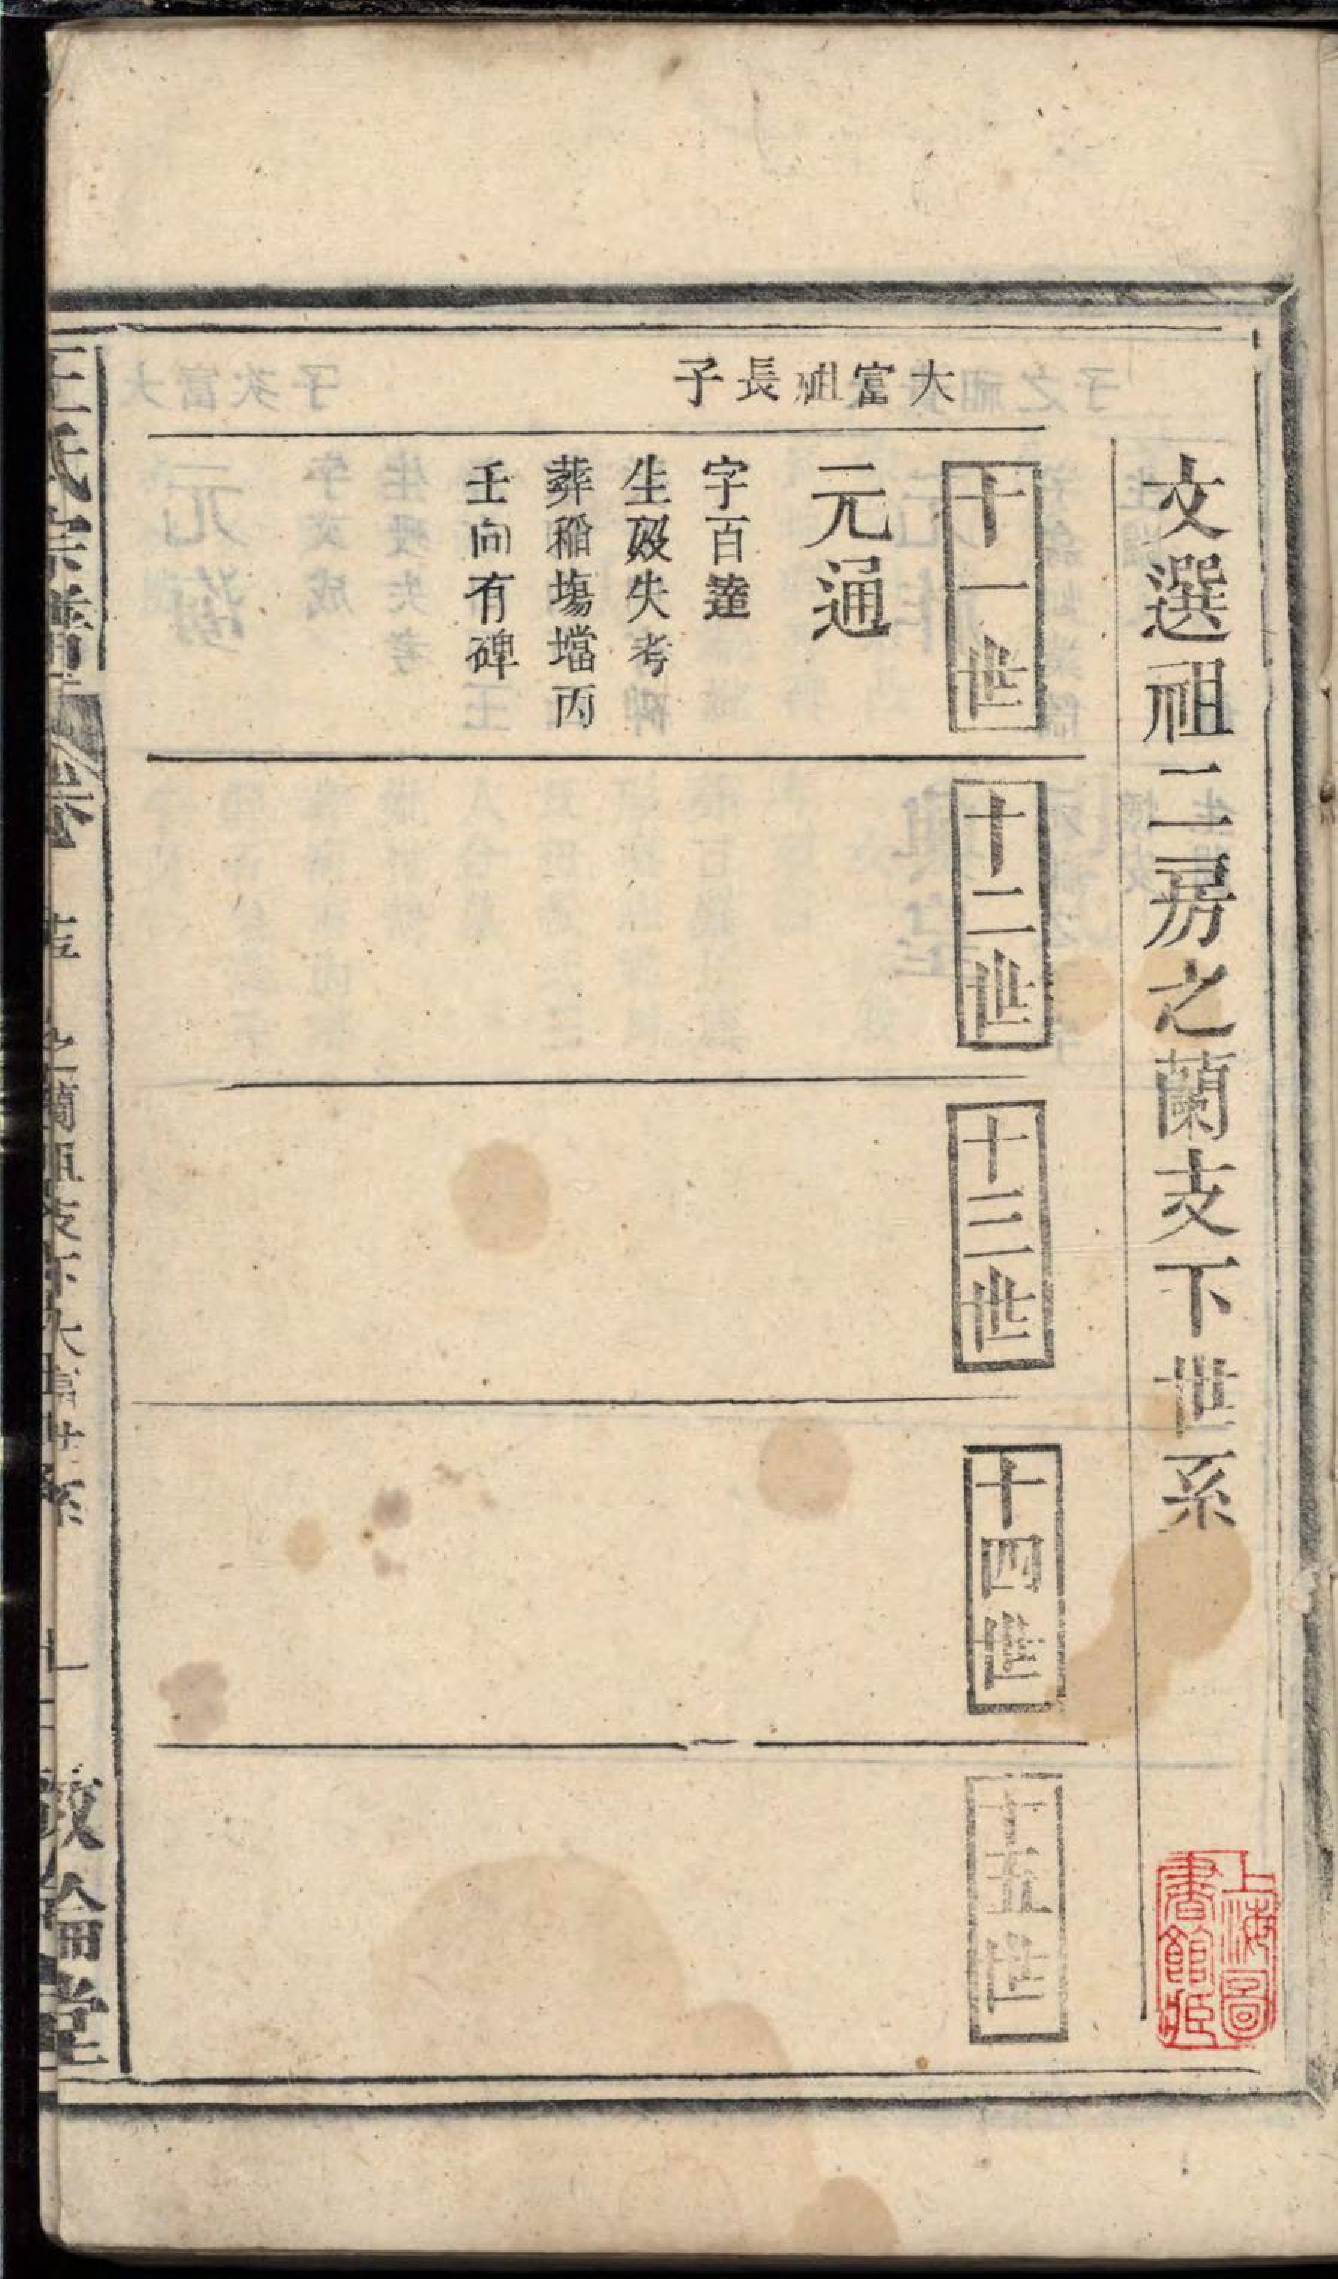 文選祖二房之蘭支下世系
十一世
大富祖長子
元通
字百達
生歿失考
葬稻塲壋丙
壬向有碑
十二世
十三世
十四世
十五世
上海圖
書館藏
王氏宗譜
敦倫堂